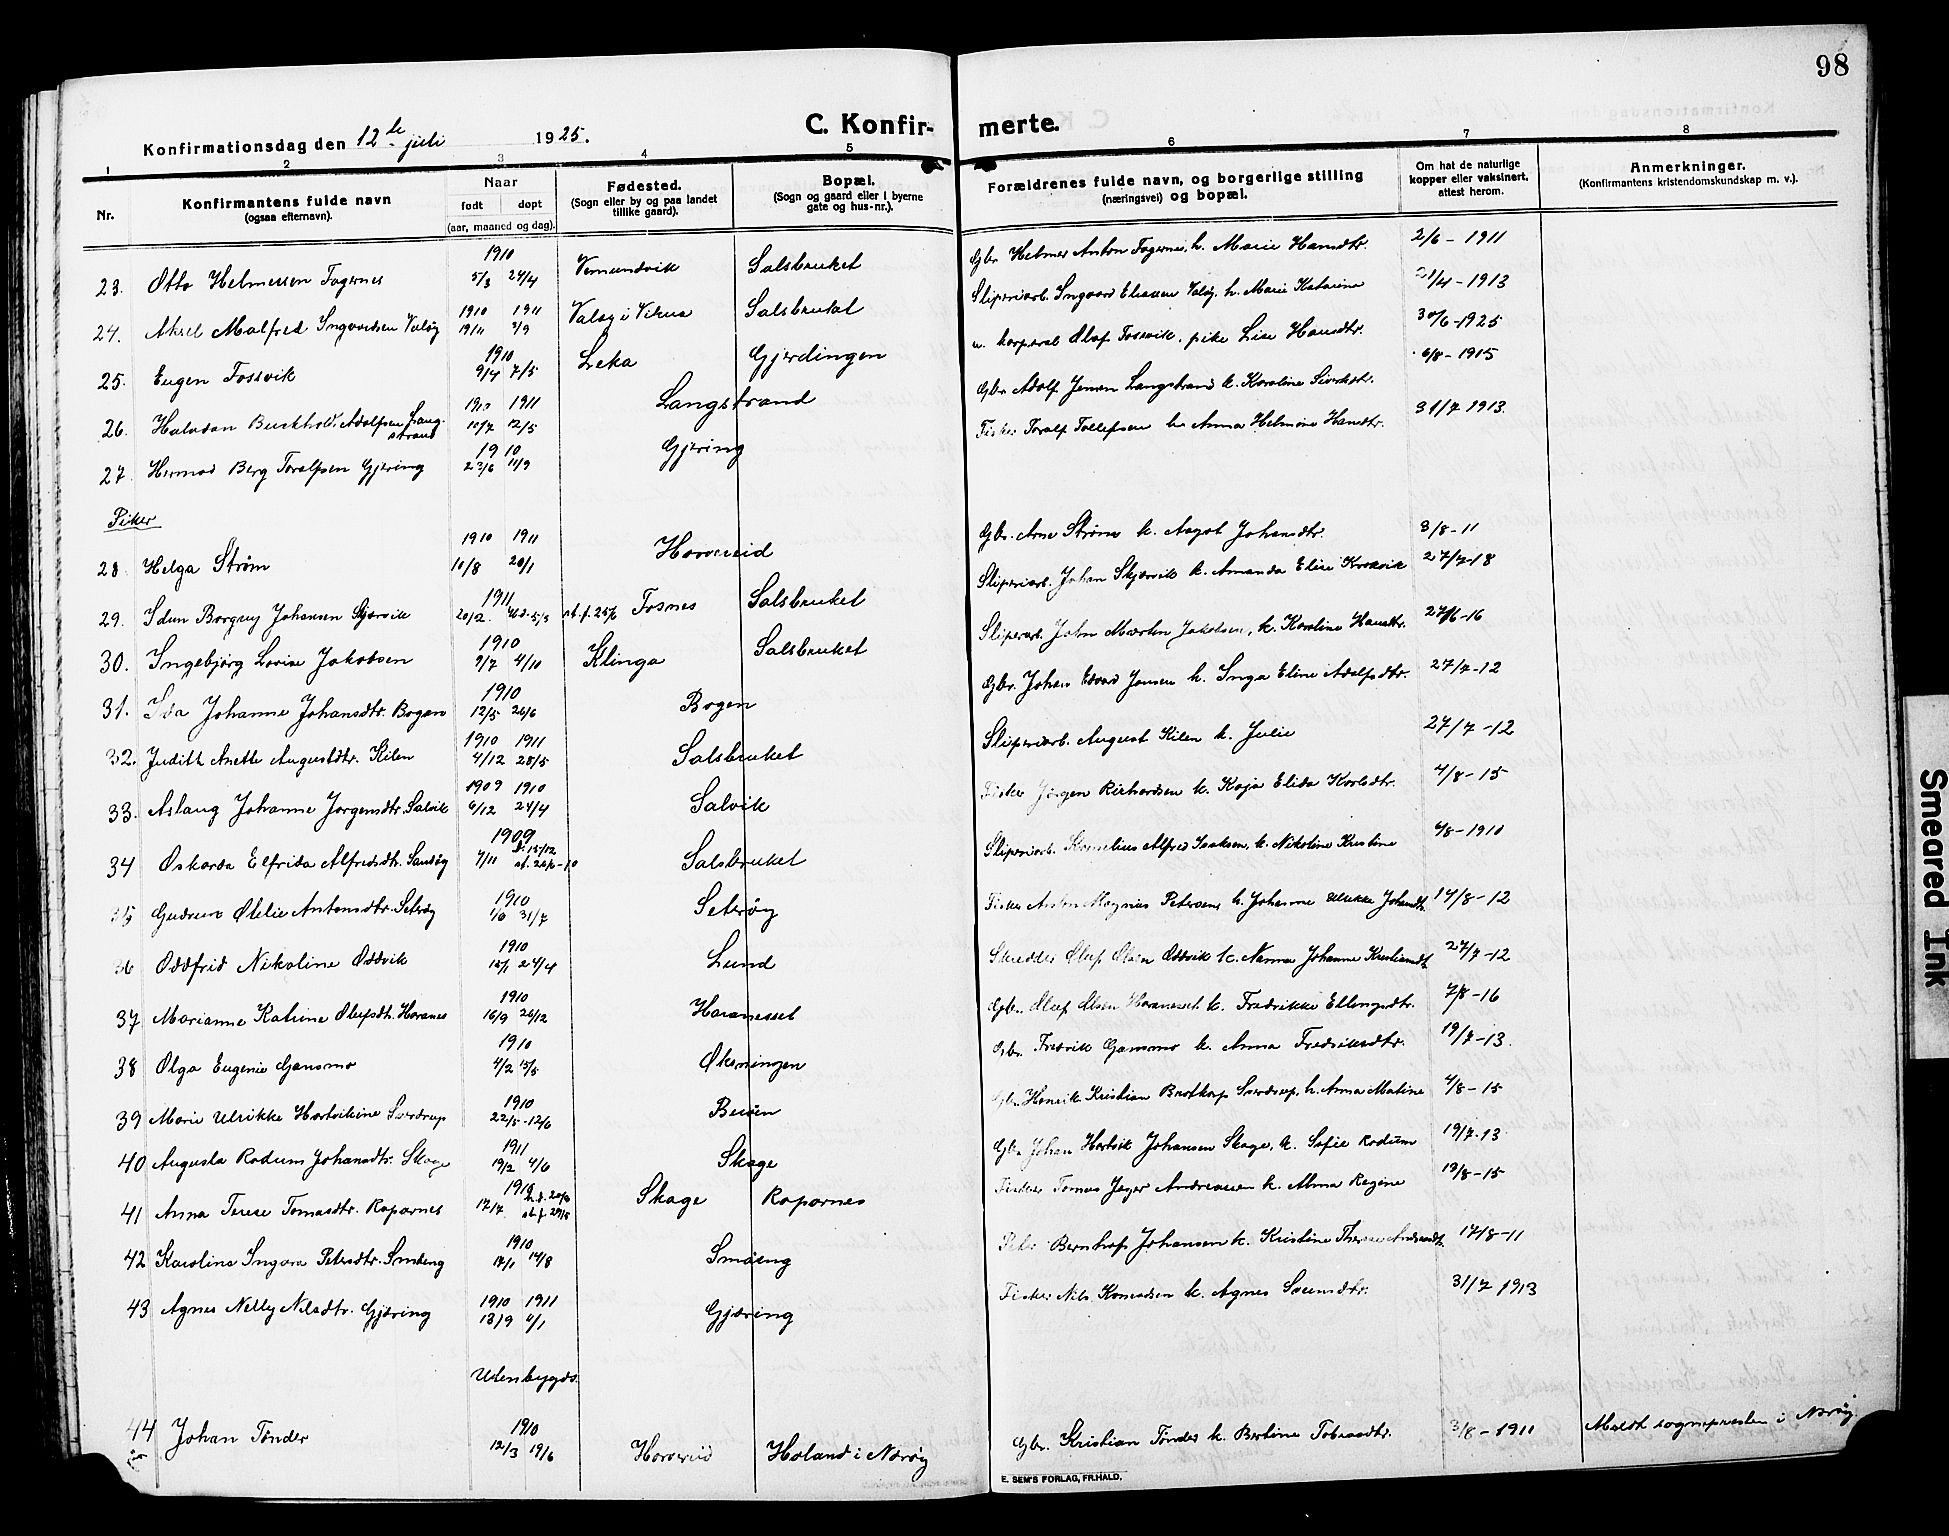 98
C. Konfir- merte.
Konfirmationsdag den 12te juli 1925.
1 2 3 4 5 6 7 8
Nr.
Konfirmantens fulde navn
(ogsaa efternavn).
Naar
født døpt
(aar, maaned og dag).
Fødested.
(Sogn eller by og paa landet
tillike gaard).
Bopæl.
(Sogn og gaard eller i byerne
gate og hus-nr.).
Forældrenes fulde navn, og borgerlige stilling
(næringsvei) og bopæl.
Om hat de naturlige
kopper eller vaksinert,
attest herom.
Anmerkninger.
(Konfirmantens kristendomskundskap m. v.).
23. Otto Helmersen Fagernes 1910 5/3 24/4 Vemundvik Salsbruket Gbr. Helmer Anton Fagernes, h. Marie Hansdtr. 2/6 - 1911
24. Aksel Malfred Ingvardsen Valøy 1910 19/11 1911 3/9 Valøy i Vikna Salsbruket Sliperiarb. Ingvard Eliassen Valøy, h. Marie Katarina 21/4 - 1913
25. Eugen Fossvik 1910 9/4 7/5 Leka Gjerdingen u. korporal Olaf Fossvik, pike Lise Hansdtr. 30/6 - 1925
26. Halvdan Adolfsen Langstrand 1910 10/7 1911 12/5 Langstrand Gbr. Adolf Jensen Langstrand h. Karoline Sivertsdtr. 6/8 - 1915
27. Hermod Berg Toralfsen Gjæring 1910 23/6 11/9 Gjæring Fisker Toralf Tollefsen h. Anna Helmine Hansdtr. 31/7 1913.
Piker
28 Helga Strøm 1910 10/8 1911 20/1 Horvereid Gbr. Arne Strøm h. Aagot Johansdtr. 3/8 - 11
29. Idun Borgny Johansen Skjærvik 1911 20/2. 5/3 st. f. 25/6 Fosnes Salsbruket Sliperiarb. Johan Skjærvik h. Amanda Elise Krokvik 27/7 - 18
30. Ingebjørg Lovise Jakobsen 1910 9/7 4/10 Klinga Salsbruket Sliperiarb. John Martin Jakobsen, h. Karoline Hansdtr. 27/6 - 16
31. Ida Johanne Johansdtr. Bogen 1910 12/5 26/6 Bogen Gbr. Johan Edvard Jensen h. Inga Eline Adolfsdtr. 27/7 - 12
32. Judith Anette Augustdtr. Kilen 1910 4/12 1911 28/5 Salsbruket Sliperiarb. August Kilen h. Julie 27/7 - 12
33. Aslaug Johanne Jørgensdtr. Salvik 1909 6/12 1910 24/4 Salvik Fisker Jørgen Richardsen h. Kaja Elida Karlsdtr. 4/8 - 15
34 Oskarda Elfrida Alfredsdtr. Sandøy 1909 7/11 15/12 Salsbruket Sliperiarb. Kornelius Alfred Isaksen h. Nikoline Kristine 4/8 - 1910
35 Gudrun Otelie Antonsdtr. Seterøy 1910 1/6 31/7 Seterøy Fisker Anton Magnus Petersen h. Johanne Ulrikke Johansdtr. 14/8 - 12
36 Oddfrid Nikoline Oddvik 1910 15/1 24/4 Lund Skredder Oluf Olsen Oddvik h. Nanna Johanne Kristiansdtr. 27/7 - 12
37 Marianne Katrine Olufsdtr. Horanes 1910 16/9 26/12 Horanesset Gbr. Oluf Olsen Horanesset h. Fredrikke Ellingsdtr. 7/8 - 16
38 Olga Eugenie Gansmo 1910 4/2 15/5 Øksningen Gbr. Fredrik Gansmo h. Anna Fredriksdtr. 19/7 - 13.
39 Marie Ulrikke Hartvikine Sverdrup 1910 22/5 - 12/6 Gbr. Henrik Kristian Sverdrup, h. Anna Matine 4/8 - 15
40 Augusta Rodum Johansdtr. Skage 1911 19/2 4/6 Skage Gbr. Johan Hartvik Johansen Skage, h. Sofie Rodum 19/7 - 13
41 Anna Terese Tomasdtr. Raparnes 1910 17/7. Skage Raparnes Fisker Tomas Jeger Andreassen h. Alma Regine 19/8 - 15
42 Karoline Ingara Petersdtr. Smøeng 1910 17/1 14/8 Smøeng Bernhof Johansen h. Kristine Therese 17/8 - 11
43 Agnes Nelly Nilsdtr. Gjæring 1910 13/9 1911 4/1 Gjæring Fisker Nils Konradsen h. Agnes Svensdtr. 31/7 1913
Udenbygds.
44 Johan Tønder 1910 12/3 19/6 Horvereid Høland i Nærøy Gbr. Kristian Tønder h. Bertine Tobiasdtr. 3/8 - 1911 Meldt sognepresten i Nærøy.
E. SEM'S FORLAG, FR.HALD.
Smeared Ink